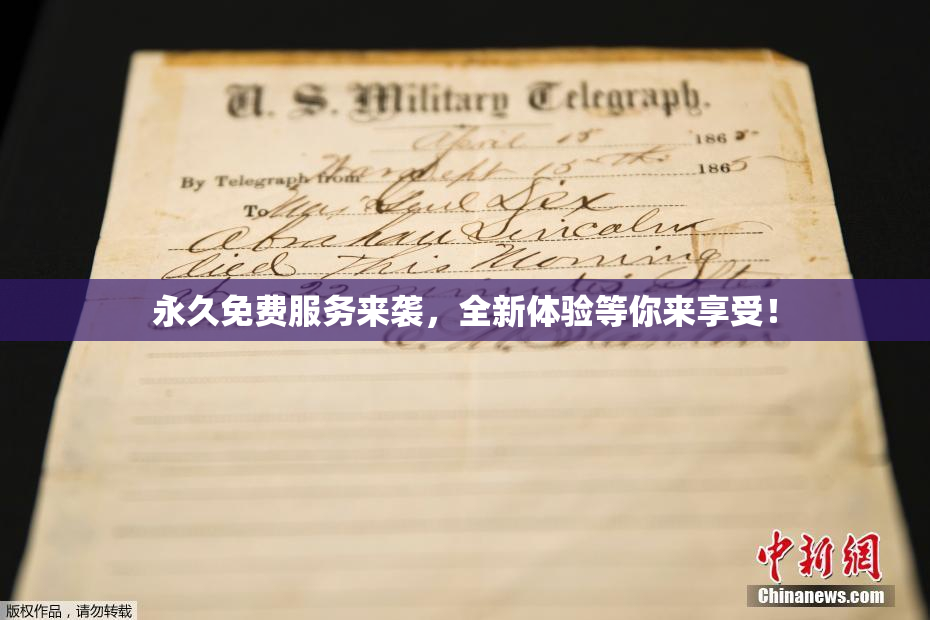 U. S. Military Telegraph.
April 15 1865
By Telegraph from War Dept 15th 1865
To Maj Genl Dix
Abraham Lincoln
died This Morning
at 22 minutes after
永久免费服务来袭，全新体验等你来享受！
E. M. Stanton
中新網
Chinanews.com
版权作品，请勿转载